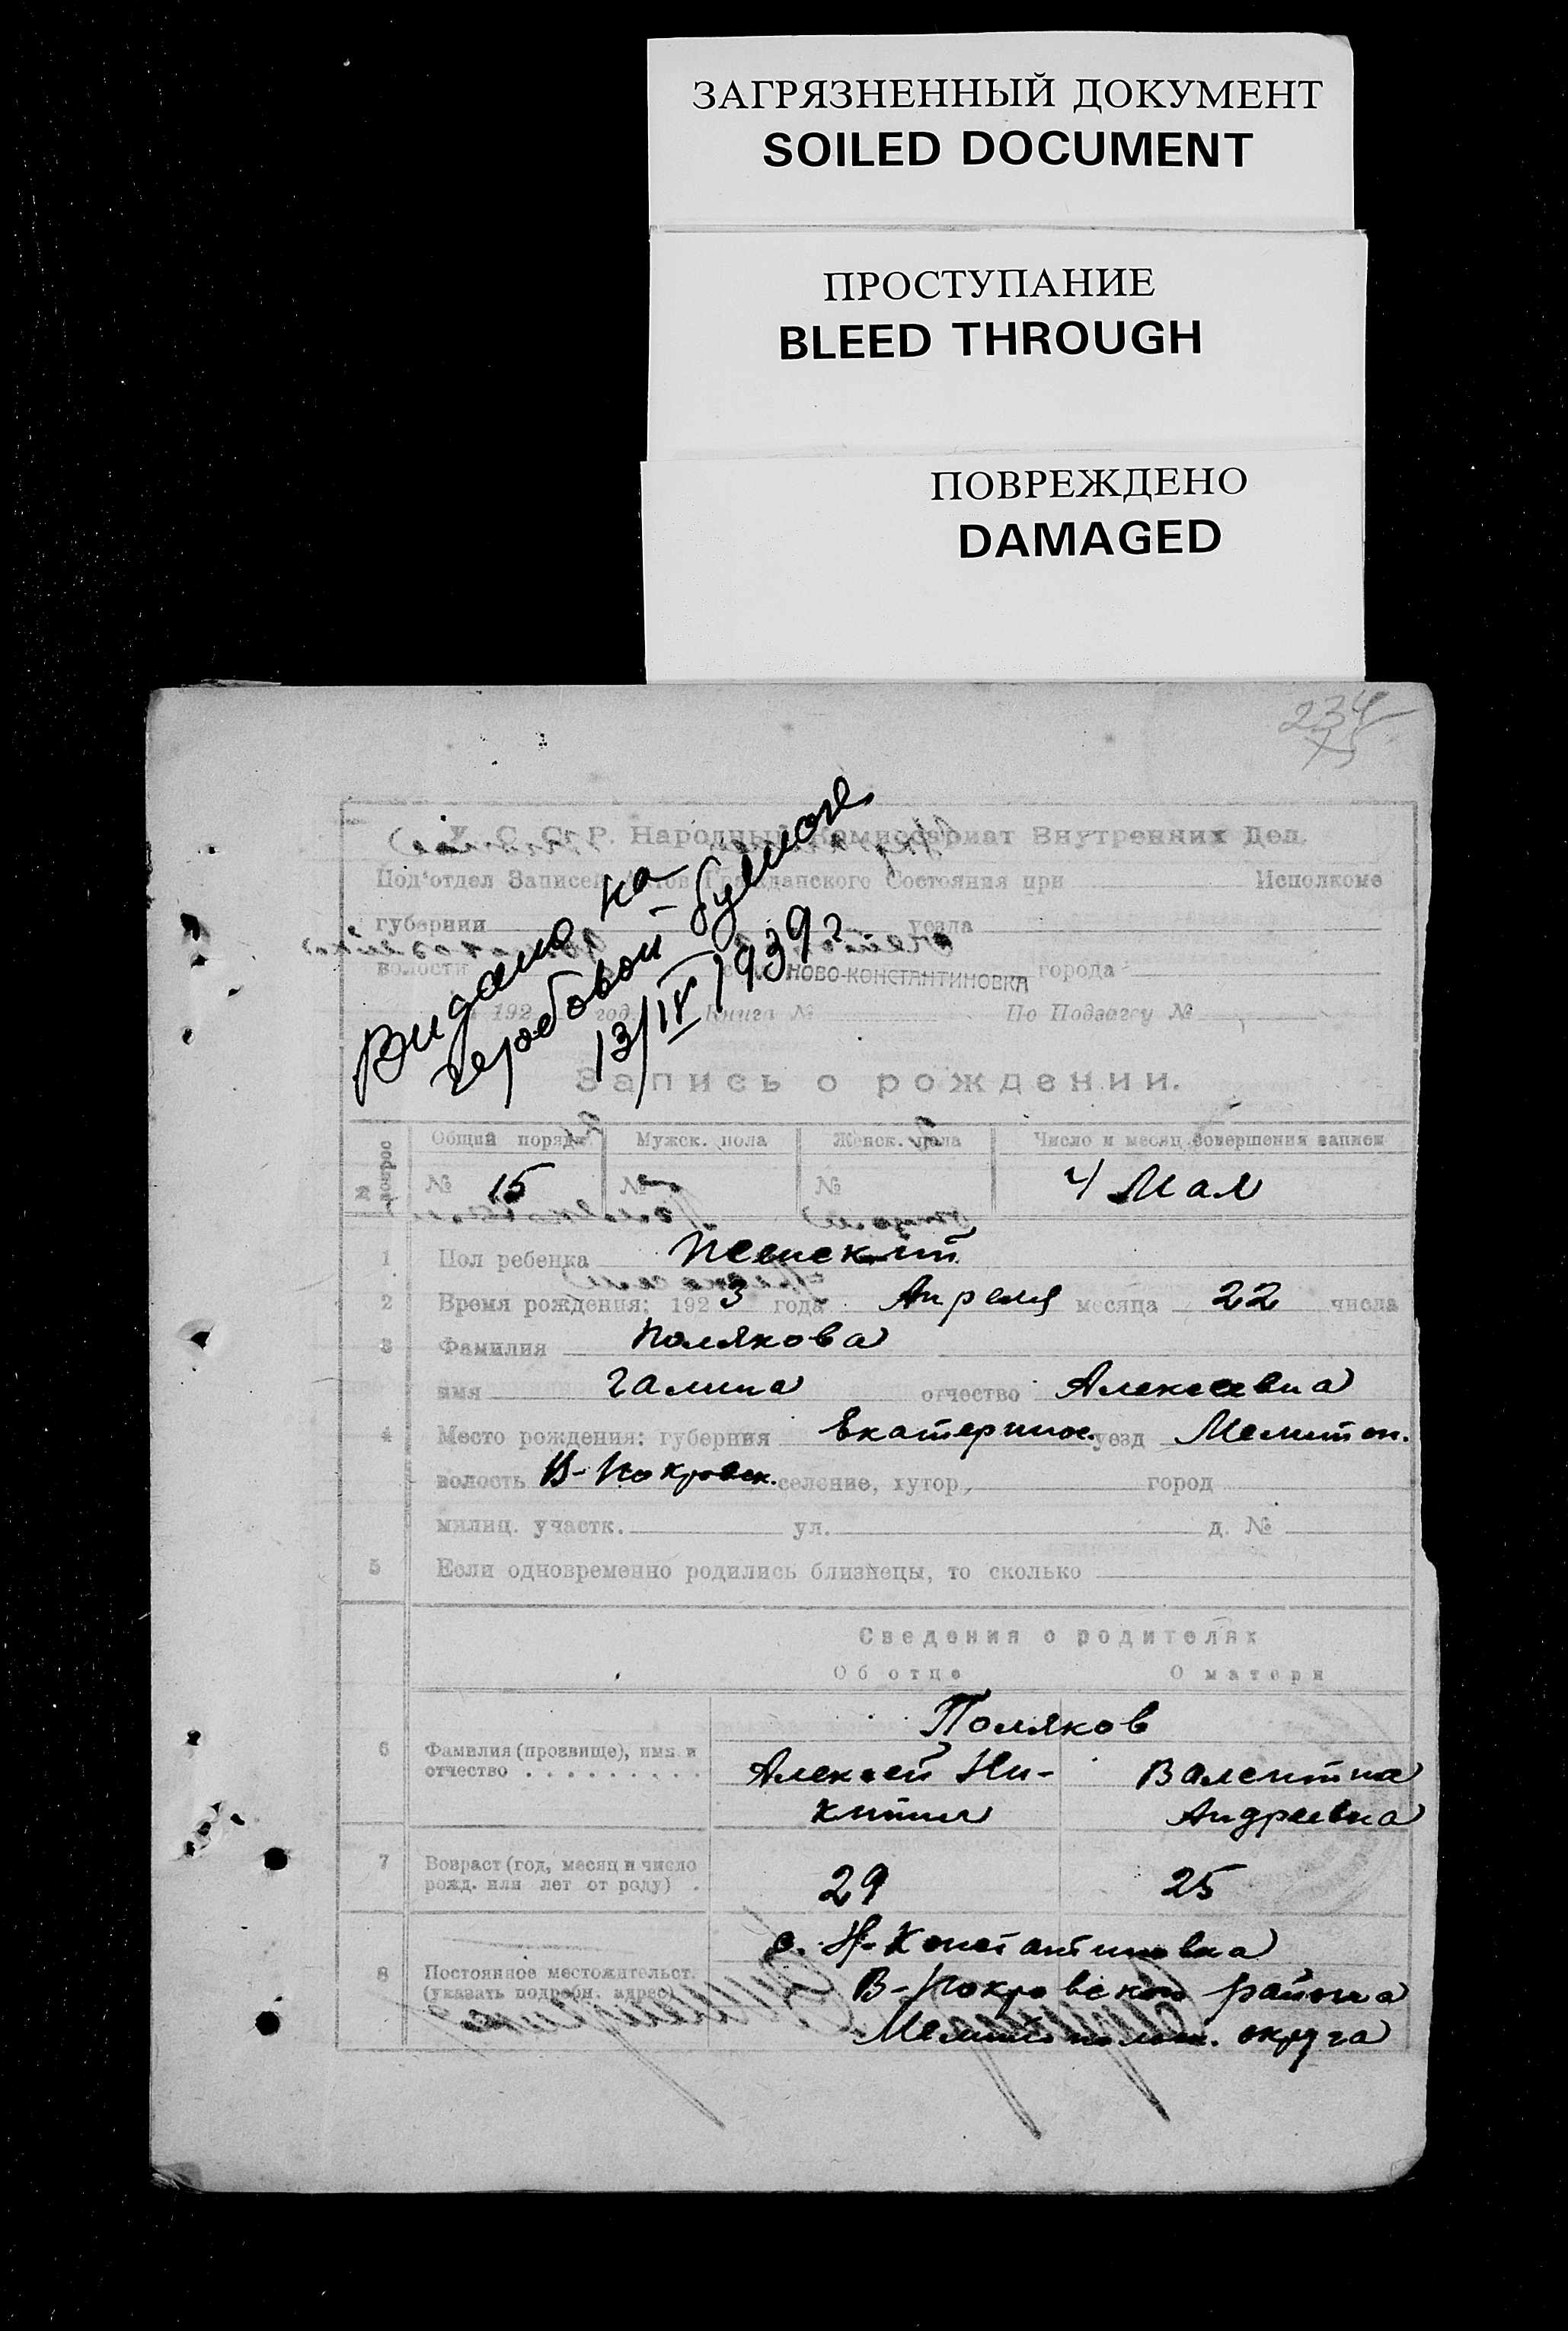 ЗАГРЯЗНЕННЫЙ ДОКУМЕНТ
SOILED DOCUMENT
ПРОСТУПАНИЕ
BLEED THROUGH
ПОВРЕЖДЕНО
DAMAGED
234
75
У. С. С. Р. Народный Комиссариат Внутренних Дел.
Под'отдел Записей Актов Гражданского Состояния при Исполкоме
губернии уезда
волости НОВО-КОНСТАНТИНОВКА города
192 год. Книга № По Подзагсу №
Видано на
гербовой бумаге
13/IV 1939 г
Запись о рождении.
№ вопрос Общий порядк Мужск. пола Женск. пола Число и месяц совершения записи
№ 15 № № 4 Мая
1 Пол ребенка Женский
2 Время рождения; 1923 года Апреля месяца 22 числа
3 Фамилия Полякова
имя Галина отчество Алексеевна
4 Место рождения: губерния Екатеринос. уезд Мелитоп.
волость В-Покровск. селение, хутор, город
милиц. участк. ул. д. №
5 Если одновременно родились близнецы, то сколько
Сведения о родителях
Об отце О матери
Поляков
6 Фамилия (прозвище), имя и
отчество . . . . . . . . . Алексей Ни- Валентина
китич Андреевна
7 Возраст (год, месяц и число
рожд. или лет от роду) . 29 25
с. Н-Константиновка
8 Постоянное местожительст.
(указать подробн. адрес) В-Покровского района
Мелитопольск. округа